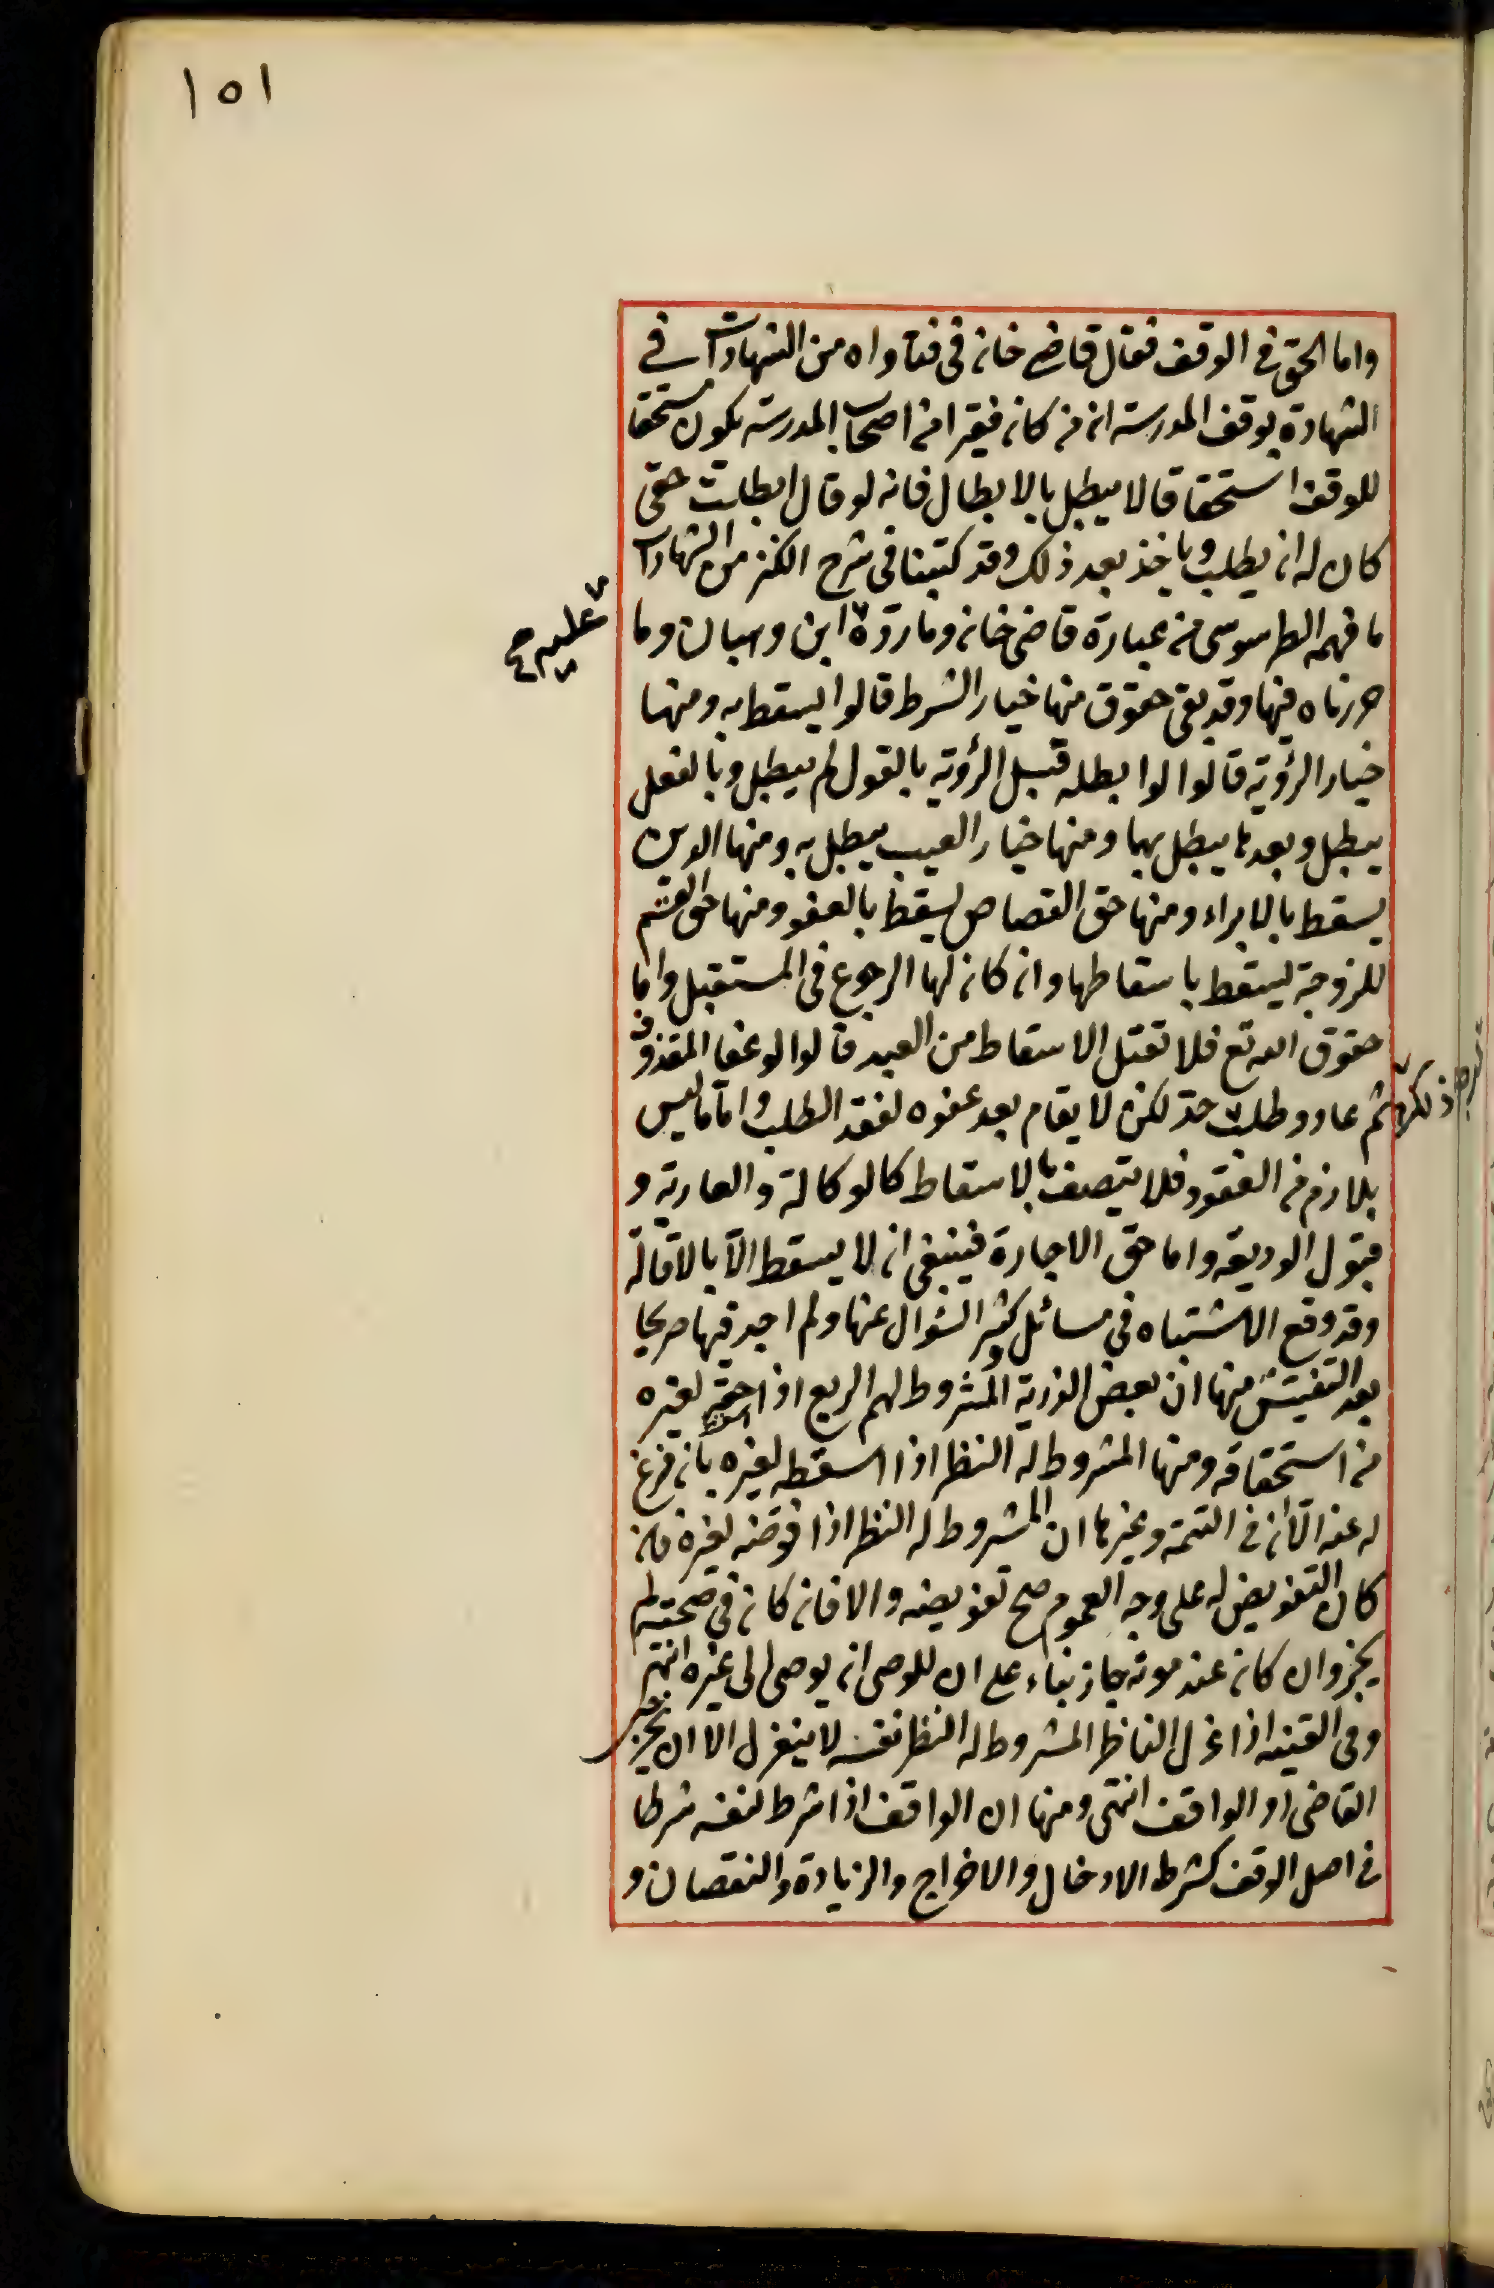 ١٥١
واما الحق في الوقف فقال قاضي خان في فتاواه من الشهادات في
الشهادة بوقف المدرسة ان من كان فقيرا من اصحاب المدرسة يكون مستحقا
للوقف استحقاقا لا يبطل بالابطال فانه لو قال ابطلت حقي
كان له ان يطلب وياخذ بعد ذلك وقد كتبنا في شرح الكنز من الشهادات
ما فهمه الطرسوسي من عبارة قاضي خان وما رده ابن وهبان وما
عليه صح
حررناه فيها وقد بقي حقوق منها خيار الشرط قالوا يسقط به ومنها
خيار الرؤية قالوا لو ابطله قبل الرؤية بالقول لم يبطل وبالفعل
يبطل وبعدها يبطل بهما ومنها خيار العيب يبطل به ومنها الدين
يسقط بالابراء ومنها حق القصاص يسقط بالعفو ومنها حق القسم
للزوجة يسقط باسقاطها وان كان لها الرجوع في المستقبل واما
حقوق الله تع فلا تقبل الاسقاط من العبد قالوا لو عفا المقذوف
ثم عاد وطلب حد لكن لا يقام بعد عفوه لفقد الطلب واما ما ليس
بلازم من العقود فلا يتصف بالاسقاط كالوكالة والعارية و
قبول الوديعة واما حق الاجارة فينبغي ان لا يسقط الا بالاقالة
وقد وقع الاشتباه في مسائل وكثر السؤال عنها ولم اجد فيها صريحا
بعد التفتيش منها ان بعض الذرية المشروط لهم الريع اذا اسقط حقه لغيره
من استحقاقه ومنها المشروط له النظر اذا اسقطه لغيره بان فرغ
له عنه الا ان في التتمة وغيرها ان المشروط له النظر اذا فوضه لغيره فان
كان التفويض له على وجه العموم صح تفويضه والا فان كان في صحته لم
يجز وان كان عند موته جاز بناء على ان للوصي ان يوصي الى غيره انتهى
وفي القنية اذا عزل الناظر المشروط له النظر نفسه لا ينعزل الا ان يخرجه
القاضي او الواقف انتهى ومنها ان الواقف اذا شرط لنفسه شرطا
في اصل الوقف كشرط الادخال والاخراج والزيادة والنقصان و